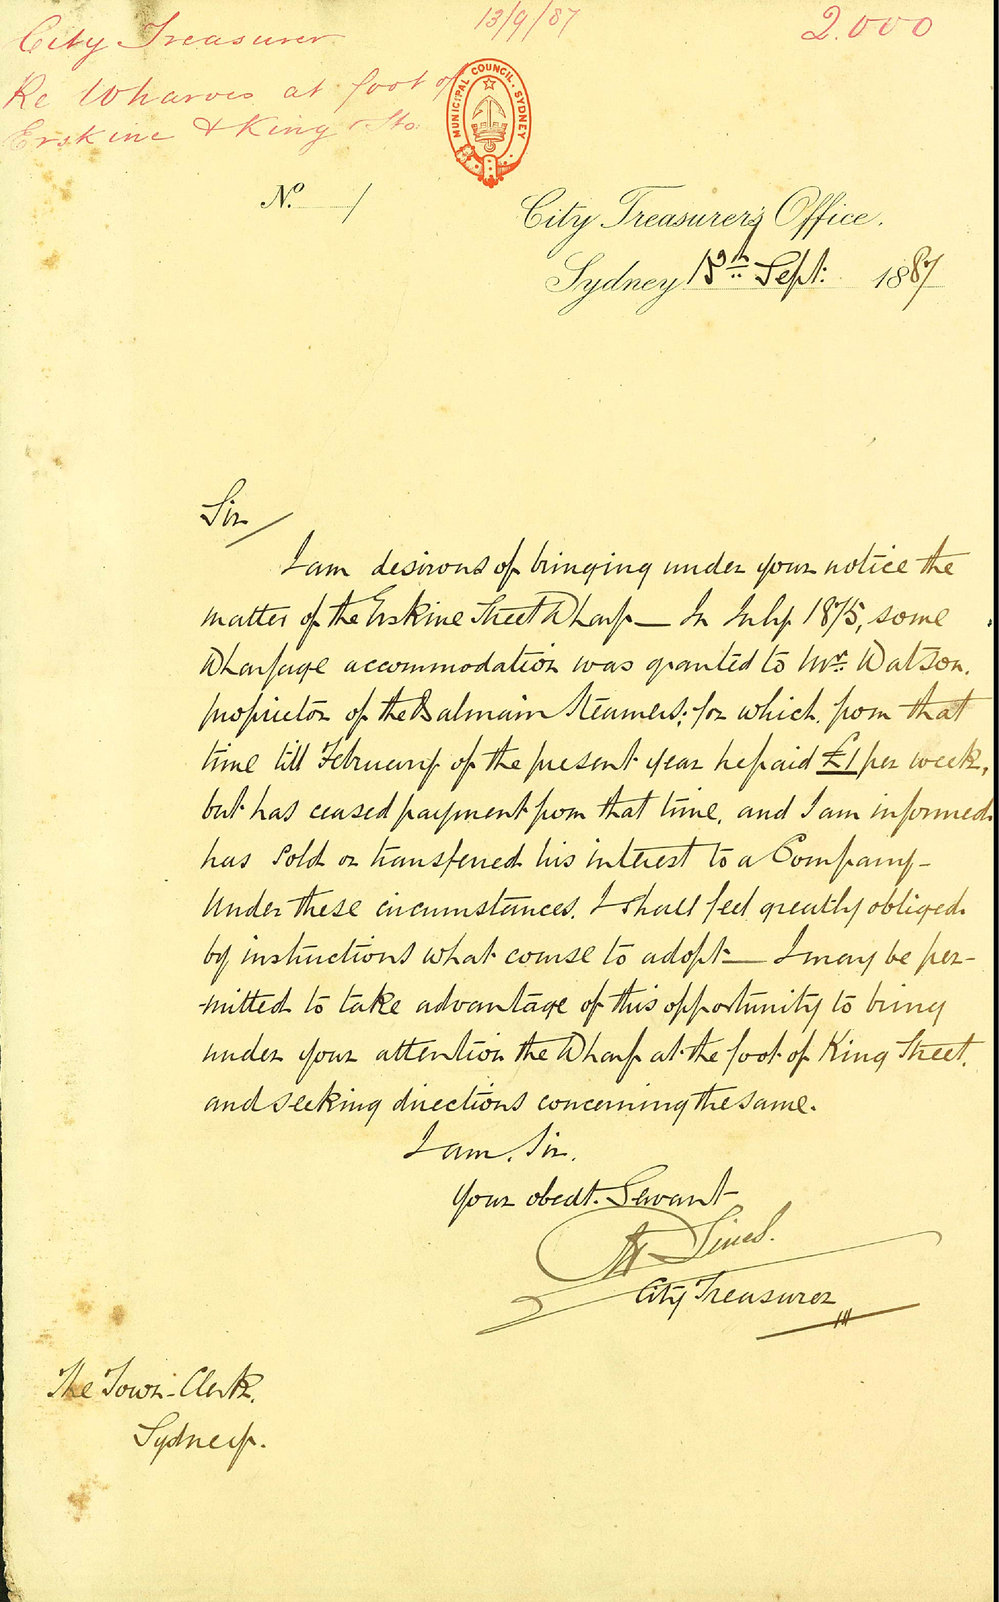 City Treasurer
Re Wharves at foot of
Erskine & King Sts.
13/9/87
2.000
MUNICIPAL COUNCIL. SYDNEY
No. /
City Treasurer's Office.
Sydney 13th Sept: 1887
Sir
I am desirous of bringing under your notice the
matter of the Erskine Street Wharf — In July 1875, some
Wharfage accommodation was granted to Mr. Watson.
proprietor of the Balmain Steamers; for which, from that
time till February of the present year he paid £1 per week,
but has ceased payment from that time, and I am informed
has sold or transferred his interest to a Company —
Under these circumstances, I shall feel greatly obliged
by instructions what course to adopt — I may be per-
-mitted to take advantage of this opportunity to bring
under your attention the Wharf at the foot of King Street,
and seeking directions concerning the same.
I am, Sir,
Your obedt. Servant
Lines.
City Treasurer
The Town-Clerk,
Sydney.